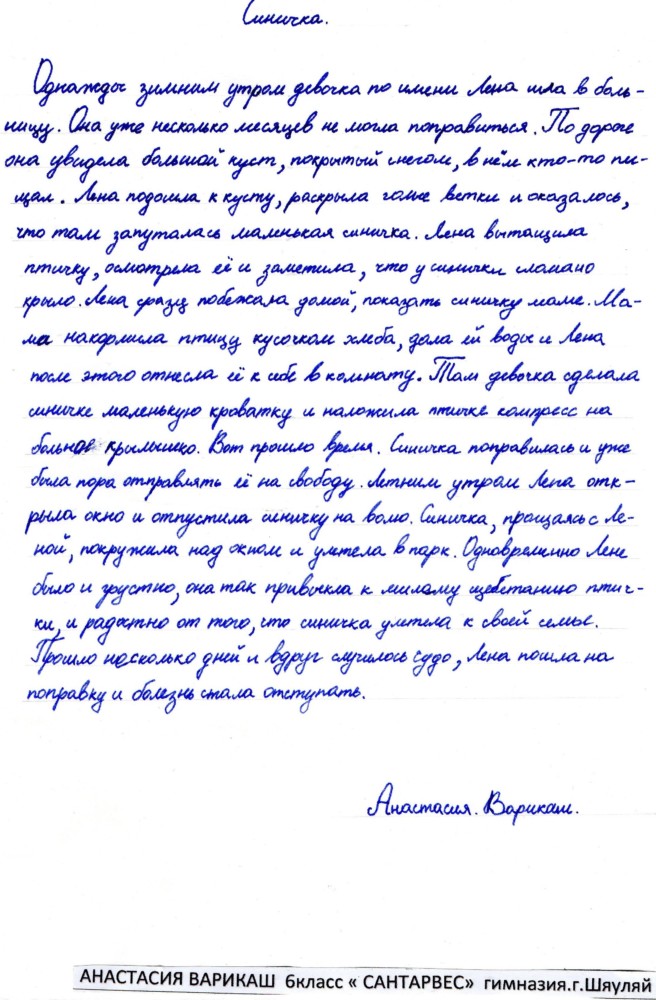 Синичка.
Однажды зимним утром девочка по имени Лена шла в боль-
ницу. Она уже несколько месяцев не могла поправиться. По дороге
она увидела большой куст, покрытый снегом, в нём кто-то пи-
щал. Лена подошла к кусту, раскрыла голые ветки и оказалось,
что там запуталась маленькая синичка. Лена вытащила
птичку, осмотрела её и заметила, что у синички сломано
крыло. Лена сразу побежала домой, показать синичку маме. Ма-
ма накормила птицу кусочком хлеба, дала ей воды и Лена
после этого отнесла её к себе в комнату. Там девочка сделала
синичке маленькую кроватку и наложила птичке компресс на
больное крылышко. Вот прошло время. Синичка поправилась и уже
была пора отправлять её на свободу. Летним утром Лена отк-
рыла окно и отпустила синичку на волю. Синичка, прощаясь с Ле-
ной, покружила над окном и улетела в парк. Одновременно Лене
было и грустно, она так привыкла к милому щебетанию птич-
ки, и радостно от того, что синичка улетела к своей семье.
Прошло несколько дней и вдруг случилось чудо, Лена пошла на
поправку и болезнь стала отступать.
Анастасия. Варикаш.
АНАСТАСИЯ ВАРИКАШ 6класс « САНТАРВЕС» гимназия.г.Шяуляй